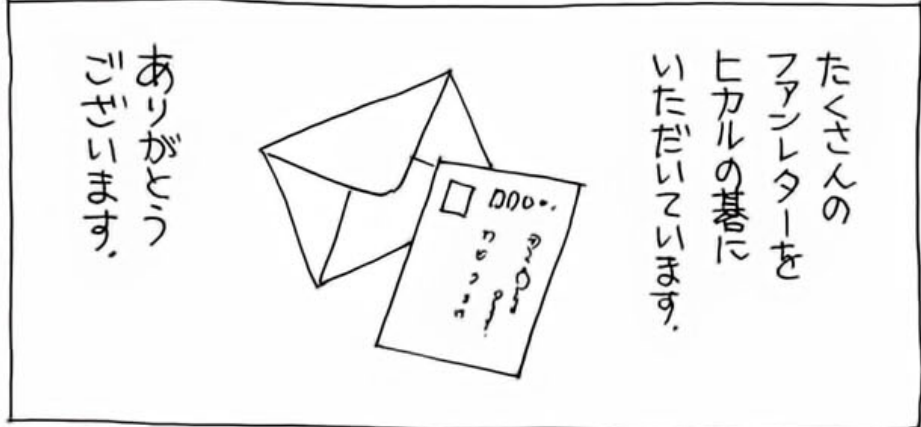 たくさんの
ファンレターを
ヒカルの碁に
いただいています.
ありがとう
ございます.